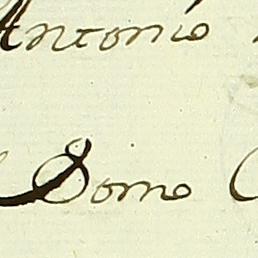 Antonio
Como